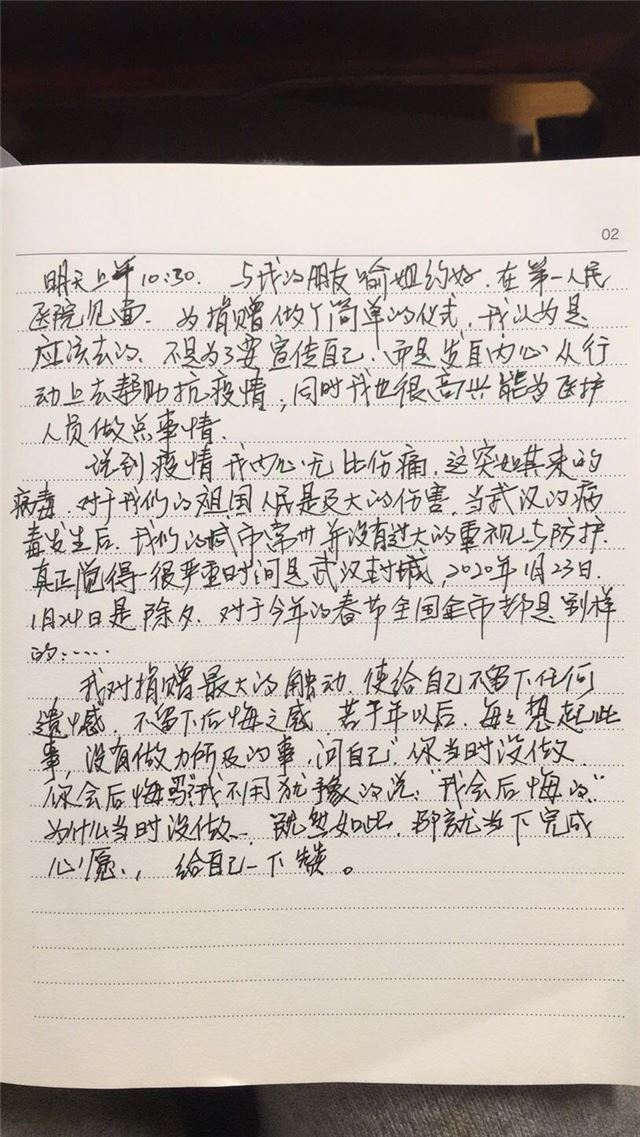 02
明天上午10:30. 与我的朋友喻姐约好.在第一人民
医院见面. 为捐赠做个简单的仪式.我认为是
应该去的.不是为了要宣传自己.而是发自内心从行
动上去帮助抗疫情,同时我也很高兴能为医护
人员做点事情.
说到疫情我内心无比伤痛.这突如其来的
病毒.对于我们的祖国人民是及大的伤害.当武汉的病
毒发生后.我们的城市常州并没有过大的重视与防护.
真正觉得一很严重时间是武汉封城,2020年1月23日.
1月24日是除夕.对于今年的春节全国全市都是别样
的......
我对捐赠最大的触动.使给自己不留下任何
遗憾感,不留下后悔之感.若干年以后.每每想起此
事,没有做力所及的事.问自己"你当时没做.
你会后悔吗?我不用犹豫的说:"我会后悔的."
为什么当时没做. 既然如此.那就当下完成
心愿., 给自己一下赞。